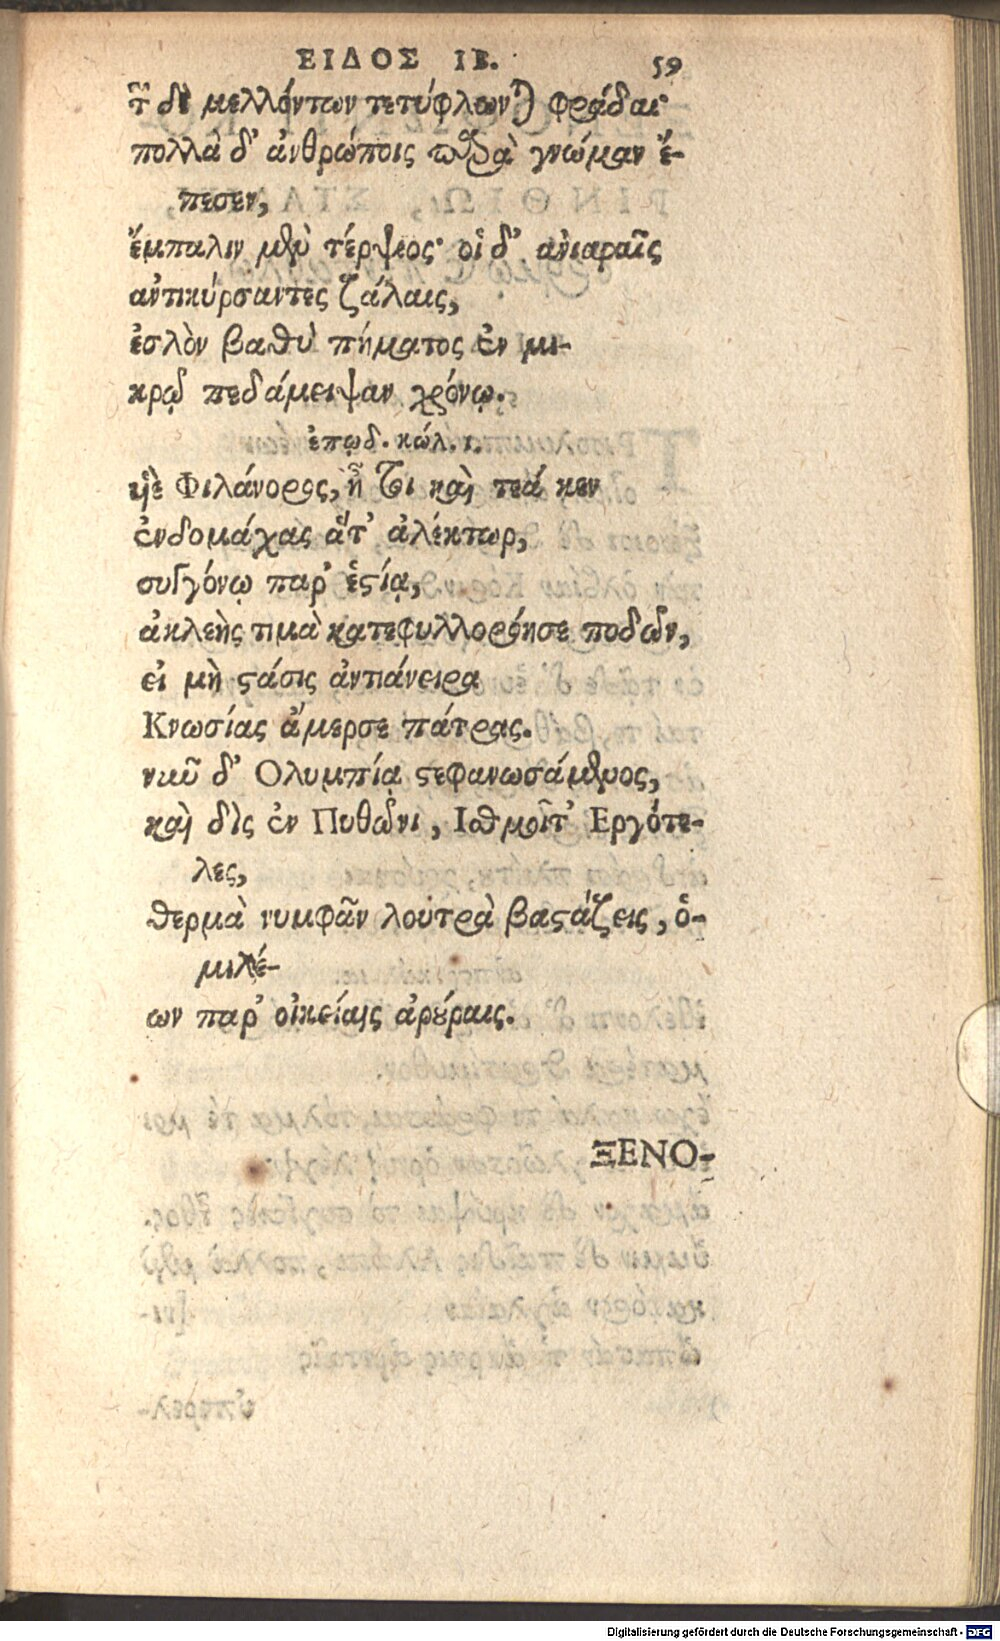 ΕΙΔΟΣ ΙΒ. 59
τῶν δὲ μελλόντων τετύφλωνται φράδαι·
πολλὰ δ' ἀνθρώποις παρὰ γνώμαν ἔ-
πεσεν,
ἔμπαλιν μὲν τέρψιος· οἱ δ' ἀνιαραῖς
ἀντικύρσαντες ζάλαις,
ἐσλὸν βαθὺ πήματος ἐν μι-
κρῷ πεδάμειψαν χρόνῳ.
ἐπῳδ. κώλ. ι.
υἱὲ Φιλάνορος, ἤτοι καὶ τεά κεν
ἐνδομάχας ἅτ' ἀλέκτωρ,
συγγόνῳ παρ' ἑστίᾳ,
ἀκλεὴς τιμὰ κατεφυλλορόησε ποδῶν,
εἰ μὴ στάσις ἀντιάνειρα
Κνωσίας ἄμερσε πάτρας.
νῦν δ' Ολυμπίᾳ στεφανωσάμενος,
καὶ δὶς ἐν Πυθῶνι, Ισθμοῖτ' Εργότε-
λες,
θερμὰ νυμφᾶν λουτρὰ βαστάζεις, ὁ-
μιλέ-
ων παρ' οἰκείαις ἀρούραις.
ΞΕΝΟ-
Digitalisierung gefördert durch die Deutsche Forschungsgemeinschaft - DFG